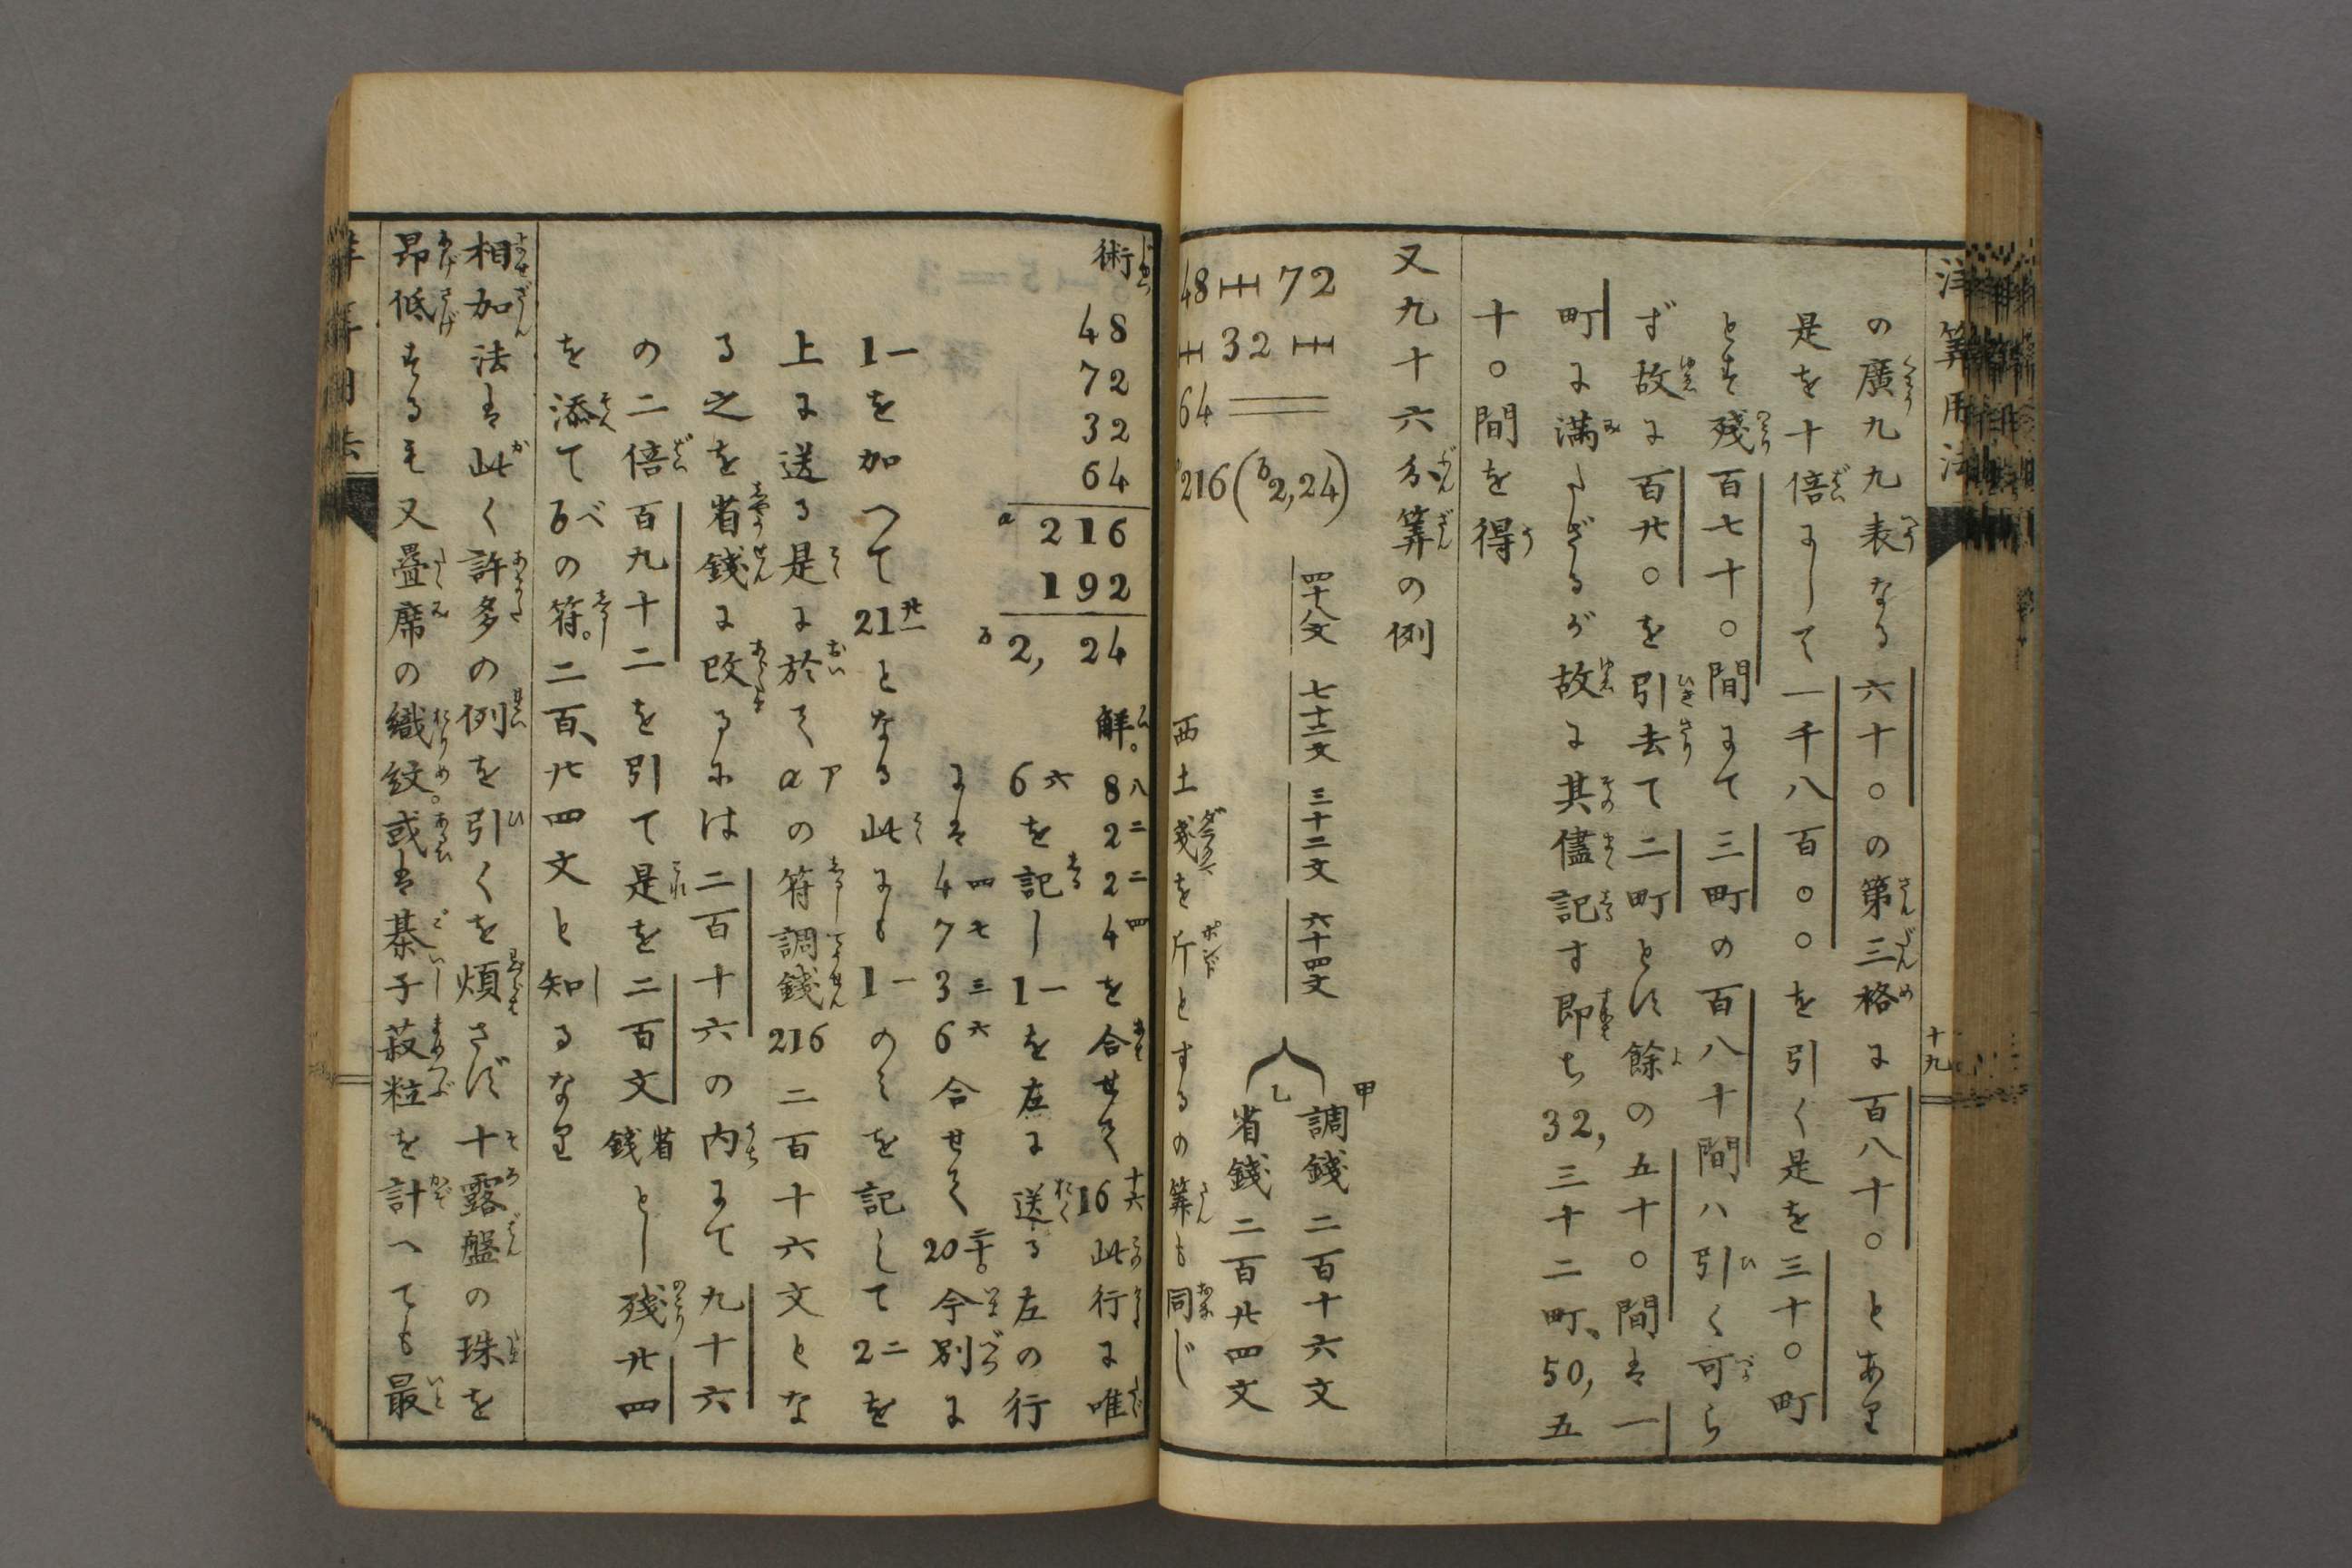 洋筭用法
十九
の廣九九表なる六十〇の第三格に百八十〇とあり
是を十倍にして一千八百〇〇を引く是を三十〇町
とす残百七十〇間にて三町の百八十間ハ引く可ら
ず故に百廿〇を引去て二町とに餘の五十〇間は一
町に満たざるが故に其儘記す即ち32,三十二町、50,五
十〇間を得
又九十六分筭の例
48 72
32
64
216(b2,24)
四十八文 七十二文 三十二文 六十四文
甲 調錢二百十六文
乙 省錢二百廿四文
西土戔を斤とするの筭も同じ
術
48
72
32
64
a 216
192
b 2, 24
解。8八2二2二4四を合せて16十六此行に唯
6六を記し1一を左に送る左の行
には4四7七3三6六合せて20二十。今別に
1一を加へて21廿一となる此にも1一のみを記して2二を
上に送る是に於てaアの符調錢216二百十六文とな
る之を省錢に改るには二百十六の内にて九十六
の二倍百九十二を引て是を二百文省錢とし残廿四
を添てbべの符。二百、廿四文と知るなり
相加法は此く許多の例を引くを煩さず十露盤の珠を
昂低するも又疊席の織紋。或は棊子菽粒を計へても最
洋筭用法